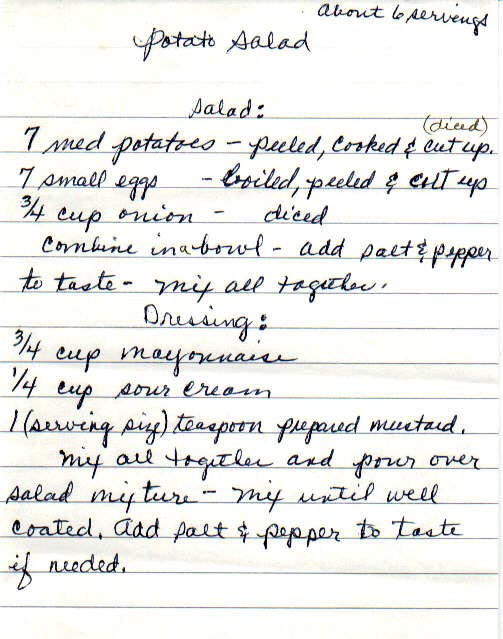 About 6 servings
Potato Salad
Salad:
(diced)
7 med potatoes - peeled, cooked & cut up.
7 small eggs - boiled, peeled & cut up
3/4 cup onion - diced
Combine in a bowl - add salt & pepper
to taste - mix all together.
Dressing:
3/4 cup mayonnaise
1/4 cup sour cream
1 (serving size) teaspoon prepared mustard.
Mix all together and pour over
salad mixture - mix until well
coated. Add salt & pepper to taste
if needed.